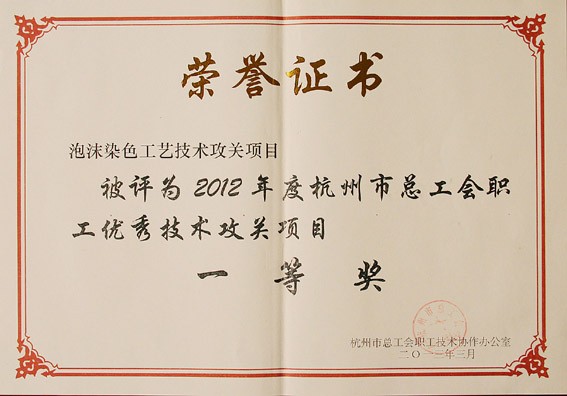 荣誉证书
泡沫染色工艺技术攻关项目
被评为2012年度杭州市总工会职
工优秀技术攻关项目
一等奖
杭州市总工会职工技术协作办公室
二〇一三年三月